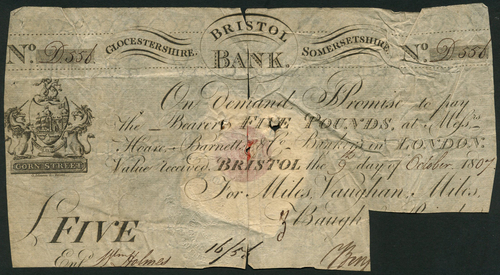 BRISTOL
GLOCESTERSHIRE. BANK. SOMERSETSHIRE.
No. D556 No. D556
On Demand I Promise to pay
the Bearer FIVE POUNDS, at Messrs
Hoare, Barnetts & Co. Bankers in LONDON.
Value received. BRISTOL the day of October 1807
CORN STREET
For Miles, Vaughan, Miles,
& Baugh
£ FIVE
Entd. Wm Holmes 16/56